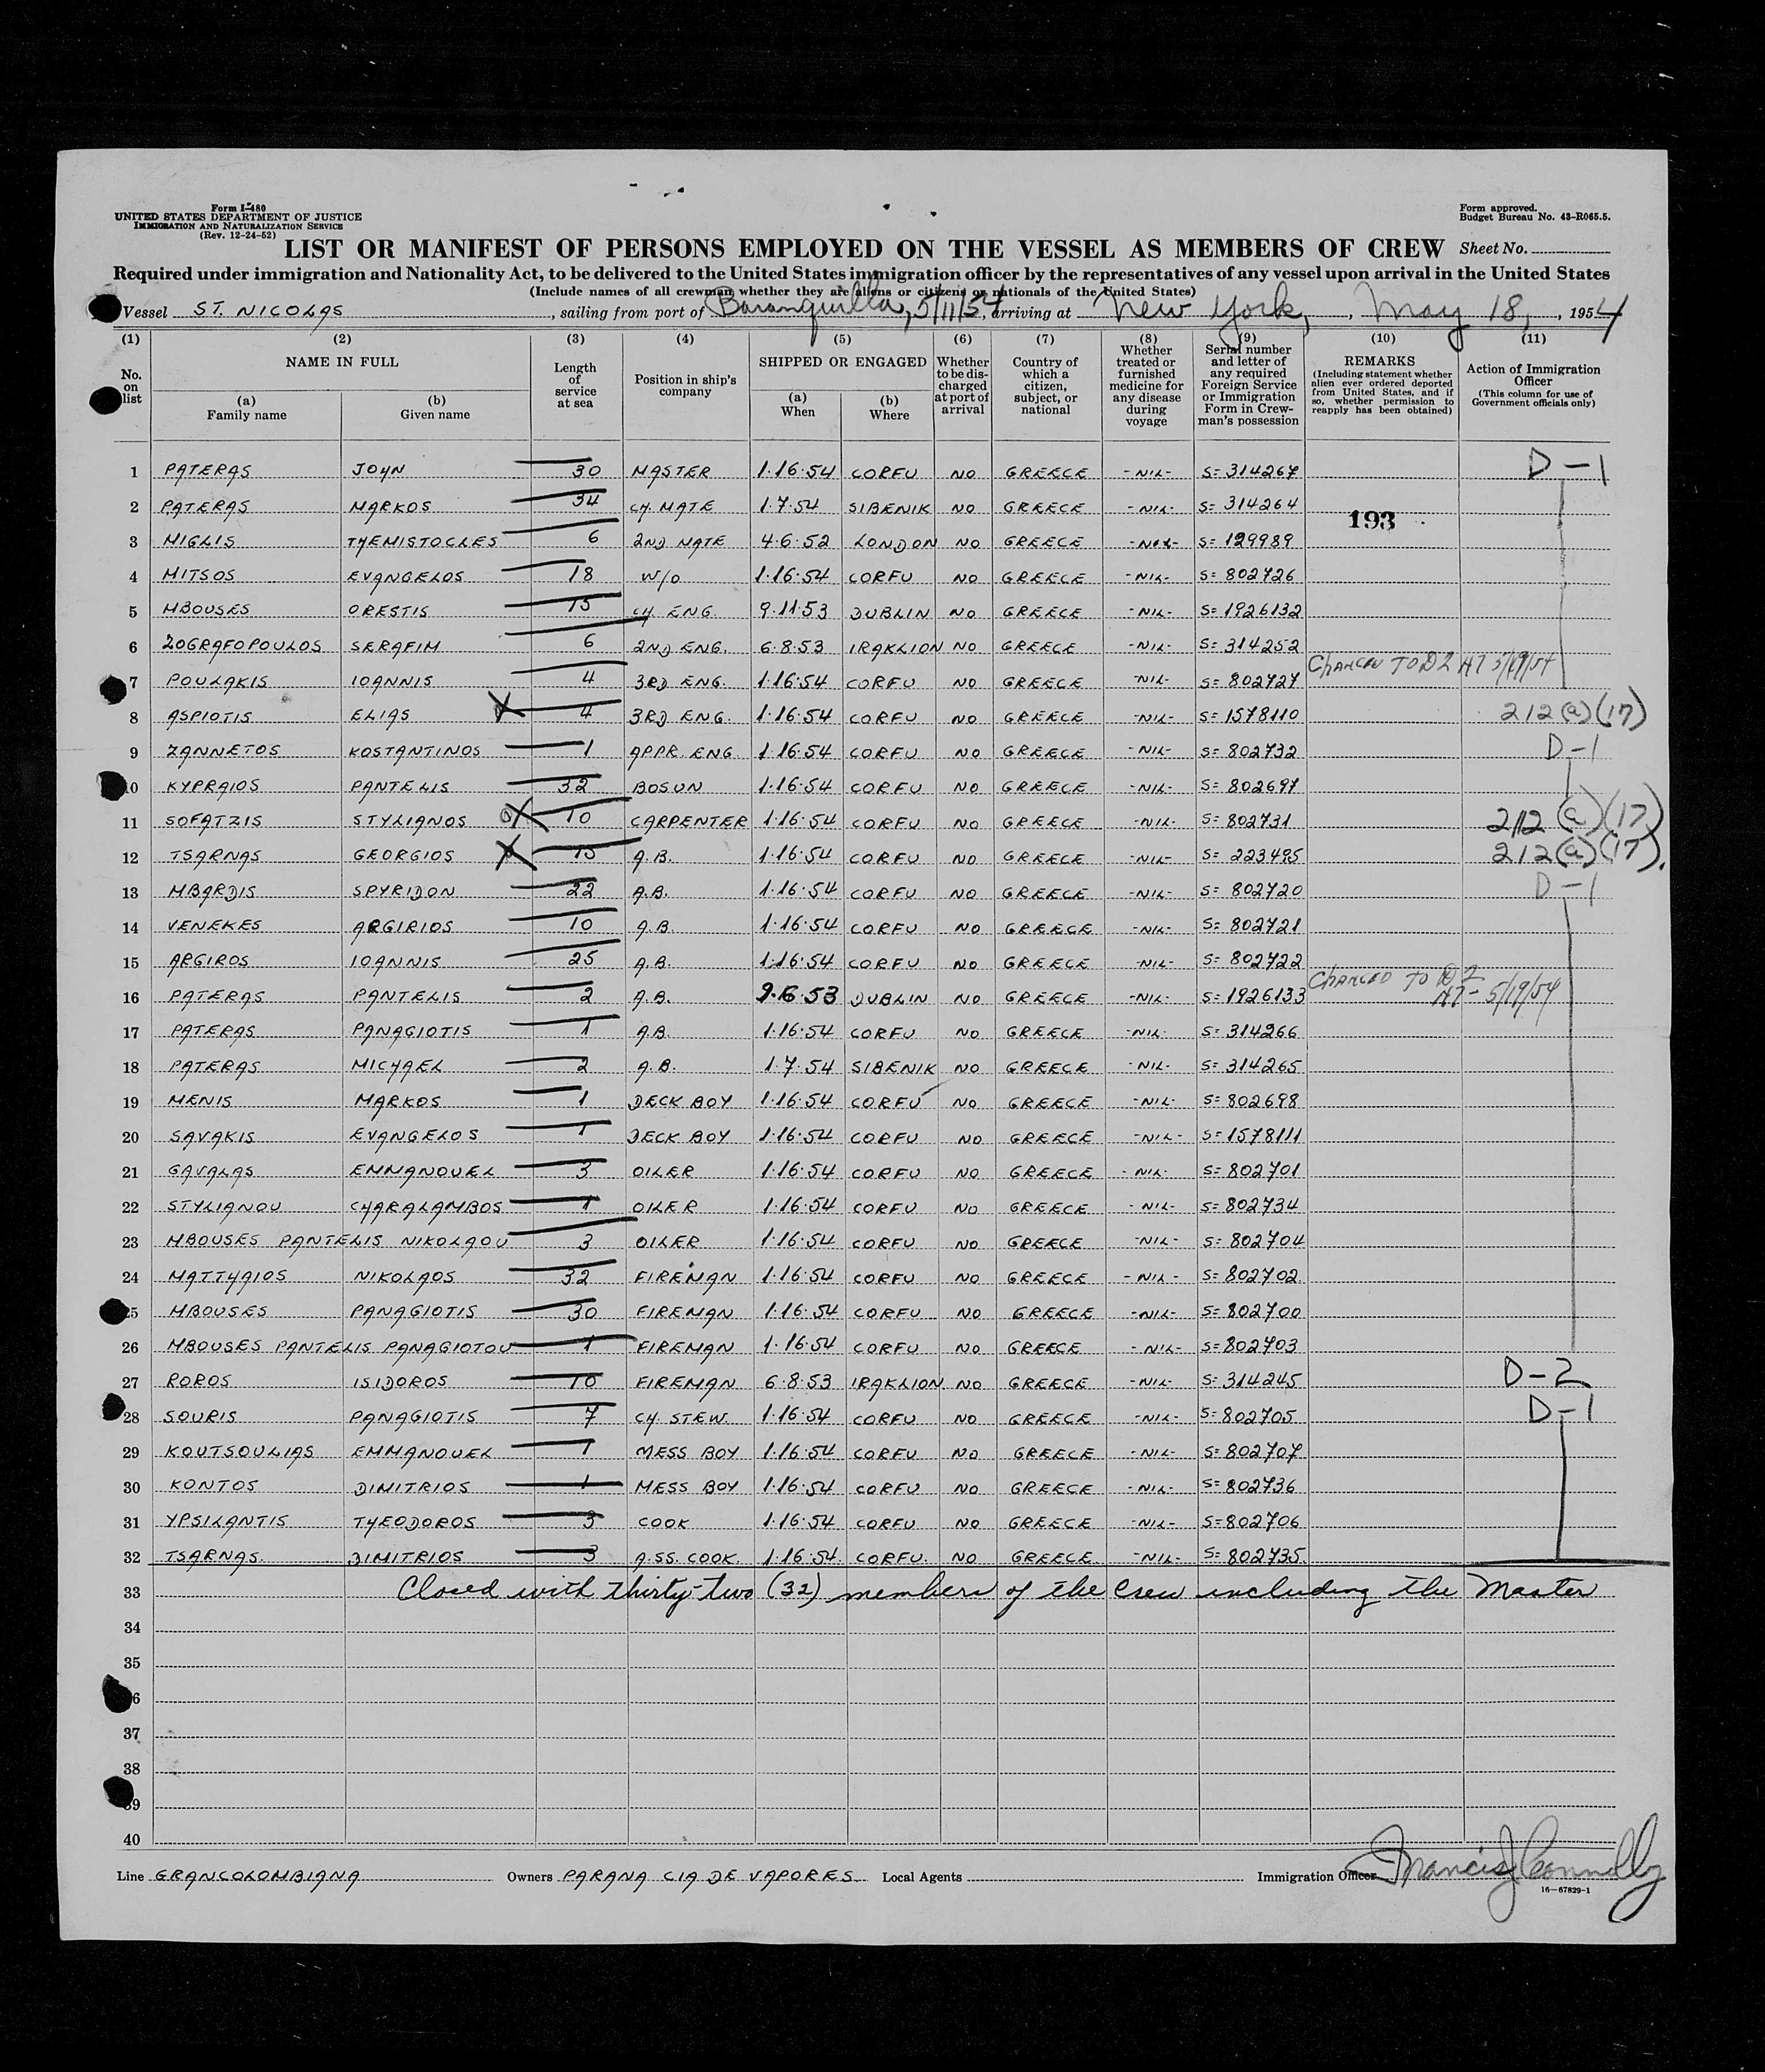 Form I-480
UNITED STATES DEPARTMENT OF JUSTICE
IMMIGRATION AND NATURALIZATION SERVICE
(Rev. 12-24-52)
Form approved.
Budget Bureau No. 43-R065.5.
LIST OR MANIFEST OF PERSONS EMPLOYED ON THE VESSEL AS MEMBERS OF CREW Sheet No.
Required under immigration and Nationality Act, to be delivered to the United States immigration officer by the representatives of any vessel upon arrival in the United States
(Include names of all crewman whether they are aliens or citizens or nationals of the United States)
Vessel ST. NICOLAS, sailing from port of Baranquilla, 5/11/54, arriving at New York, May 18, 1954
(1) (2) (3) (4) (5) (6) (7) (8) (9) (10) (11)
No. on list
NAME IN FULL
(a) Family name
(b) Given name
Length of service at sea
Position in ship's company
SHIPPED OR ENGAGED
(a) When
(b) Where
Whether to be discharged at port of arrival
Country of which a citizen, subject, or national
Whether treated or furnished medicine for any disease during voyage
Serial number and letter of any required Foreign Service or Immigration Form in Crewman's possession
REMARKS
(Including statement whether alien ever ordered deported from United States, and if so, whether permission to reapply has been obtained)
Action of Immigration Officer
(This column for use of Government officials only)
1 PATERAS JOHN 30 MASTER 1·16·54 CORFU NO GREECE -NIL- S= 314267 D-1
2 PATERAS MARKOS 34 CH. MATE 1·7·54 SIBENIK NO GREECE -NIL- S= 314264
193
3 MIGLIS THEMISTOCLES 6 2ND MATE 4·6·52 LONDON NO GREECE -NIL- S= 129989
4 MITSOS EVANGELOS 18 W/O 1·16·54 CORFU NO GREECE -NIL- S= 802726
5 MBOUSES ORESTIS 15 CH. ENG. 9·11·53 DUBLIN NO GREECE -NIL- S= 1926132
6 ZOGRAFOPOULOS SERAFIM 6 2ND ENG. 6·8·53 IRAKLION NO GREECE -NIL- S= 314252
7 POULAKIS IOANNIS 4 3RD ENG. 1·16·54 CORFU NO GREECE -NIL- S= 802727 CHANGED TO D2 HT 5/19/54
8 ASPIOTIS ELIAS X 4 3RD ENG. 1·16·54 CORFU NO GREECE -NIL- S= 1578110 212(a)(17)
9 ZANNETOS KOSTANTINOS 1 APPR. ENG. 1·16·54 CORFU NO GREECE -NIL- S= 802732 D-1
10 KYPRAIOS PANTELIS 32 BOSUN 1·16·54 CORFU NO GREECE -NIL- S= 802697
11 SOFATZIS STYLIANOS X 10 CARPENTER 1·16·54 CORFU NO GREECE -NIL- S= 802731 212(a)(17)
12 TSARNAS GEORGIOS X 15 A.B. 1·16·54 CORFU NO GREECE -NIL- S= 223495 212(a)(17).
13 MBARDIS SPYRIDON 22 A.B. 1·16·54 CORFU NO GREECE -NIL- S= 802720 D-1
14 VENEKES ARGIRIOS 10 A.B. 1·16·54 CORFU NO GREECE -NIL- S= 802721
15 ARGIROS IOANNIS 25 A.B. 1·16·54 CORFU NO GREECE -NIL- S= 802722
16 PATERAS PANTELIS 2 A.B. 9·6·53 DUBLIN NO GREECE -NIL- S= 1926133 CHANGED TO D2 HT- 5/19/54
17 PATERAS PANAGIOTIS 1 A.B. 1·16·54 CORFU NO GREECE -NIL- S= 314266
18 PATERAS MICHAEL 2 A.B. 1·7·54 SIBENIK NO GREECE -NIL- S= 314265
19 MENIS MARKOS 1 DECK BOY 1·16·54 CORFU NO GREECE -NIL- S= 802698
20 SAVAKIS EVANGELOS 1 DECK BOY 1·16·54 CORFU NO GREECE -NIL- S= 1578111
21 GAVALAS EMMANOUEL 3 OILER 1·16·54 CORFU NO GREECE -NIL- S= 802701
22 STYLIANOU CHARALAMBOS 1 OILER 1·16·54 CORFU NO GREECE -NIL- S= 802734
23 MBOUSES PANTELIS NIKOLAOU 3 OILER 1·16·54 CORFU NO GREECE -NIL- S= 802704
24 MATTHAIOS NIKOLAOS 32 FIREMAN 1·16·54 CORFU NO GREECE -NIL- S= 802702
25 MBOUSES PANAGIOTIS 30 FIREMAN 1·16·54 CORFU NO GREECE -NIL- S= 802700
26 MBOUSES PANTELIS PANAGIOTOU 1 FIREMAN 1·16·54 CORFU NO GREECE -NIL- S= 802703
27 ROROS ISIDOROS 10 FIREMAN 6·8·53 IRAKLION NO GREECE -NIL- S= 314245 D-2
28 SOURIS PANAGIOTIS 7 CH. STEW. 1·16·54 CORFU NO GREECE -NIL- S= 802705 D-1
29 KOUTSOULIAS EMMANOUEL 1 MESS BOY 1·16·54 CORFU NO GREECE -NIL- S= 802707
30 KONTOS DIMITRIOS 1 MESS BOY 1·16·54 CORFU NO GREECE -NIL- S= 802736
31 YPSILANTIS THEODOROS 3 COOK 1·16·54 CORFU NO GREECE -NIL- S= 802706
32 TSARNAS DIMITRIOS 3 A.SS. COOK 1·16·54 CORFU NO GREECE -NIL- S= 802735
33 Closed with thirty-two (32) members of the Crew including the Master
34
35
36
37
38
39
40
Line GRANCOLOMBIANA Owners PARANA CIA DE VAPORES Local Agents Immigration Officer Francis J. Connolly
16-67829-1